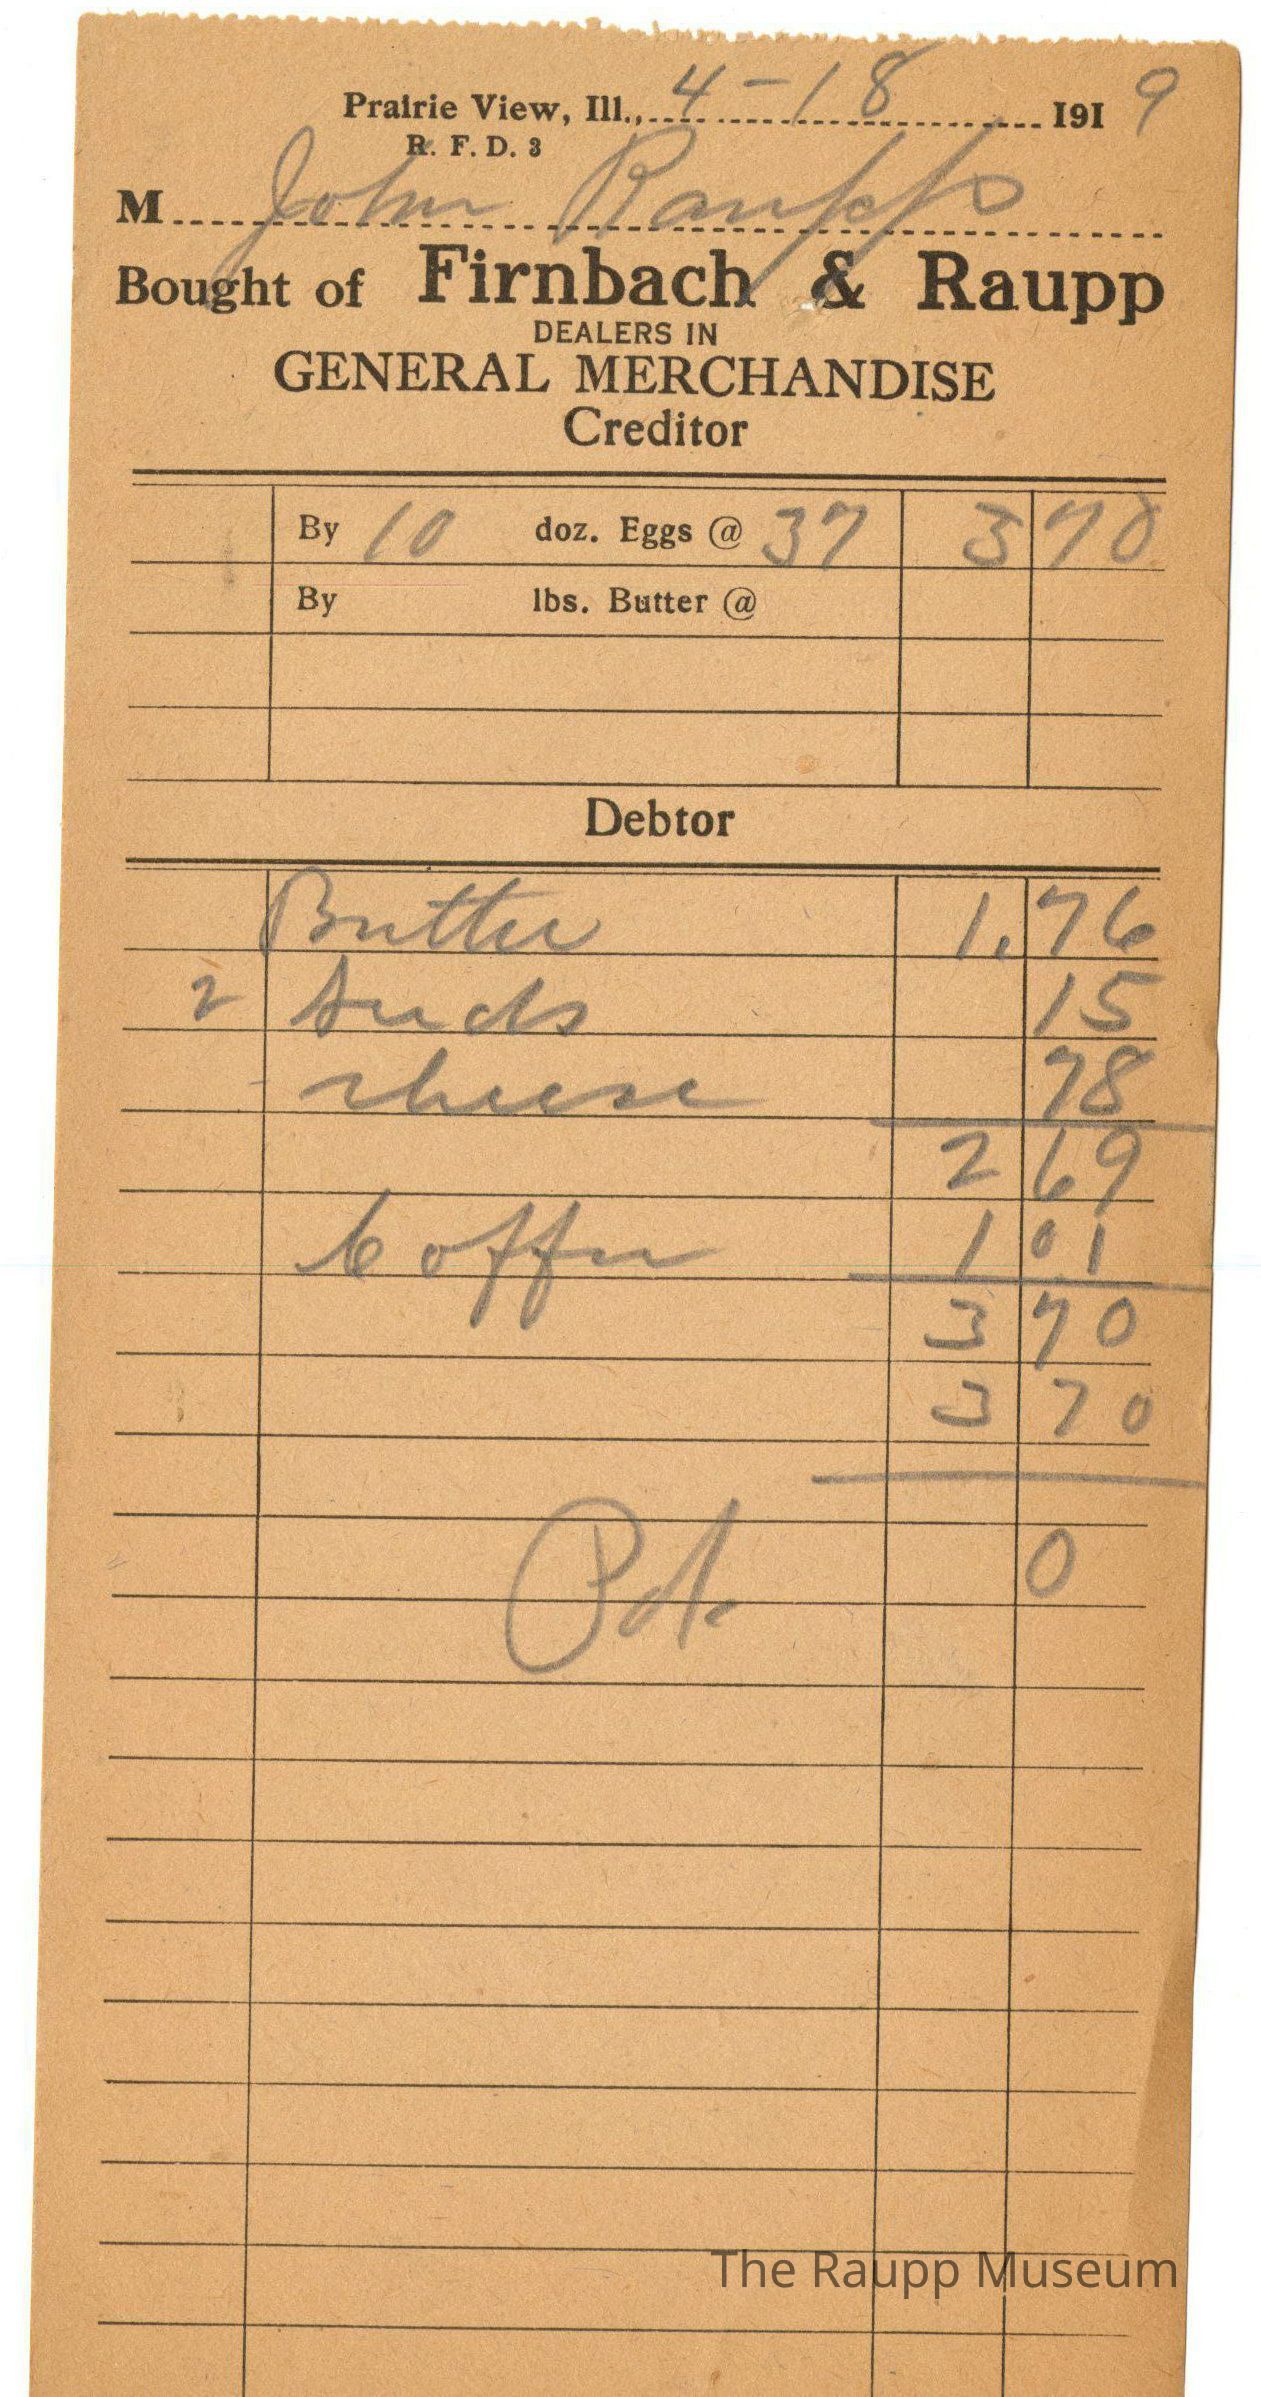 Prairie View, Ill., 4-18 1919
R. F. D. 3
M John Raupp
Bought of Firnbach & Raupp
DEALERS IN
GENERAL MERCHANDISE
Creditor
By 10 doz. Eggs @ 37 3 70
By lbs. Butter @
Debtor
Butter 1.76
2 Suds 15
cheese 78
2 69
Coffee 1 01
3 70
3 70
0
Pd.
The Raupp Museum